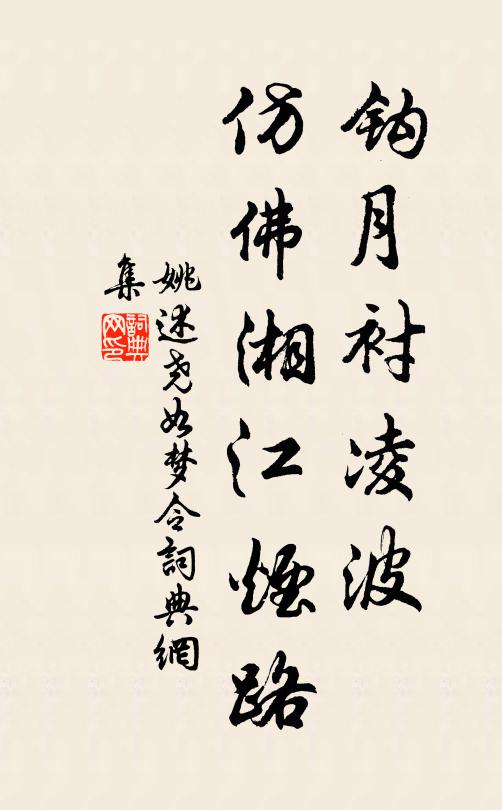 钩月衬凌波
仿佛湘江煙路
姚述尧如梦令詞典網
集
詞典网印